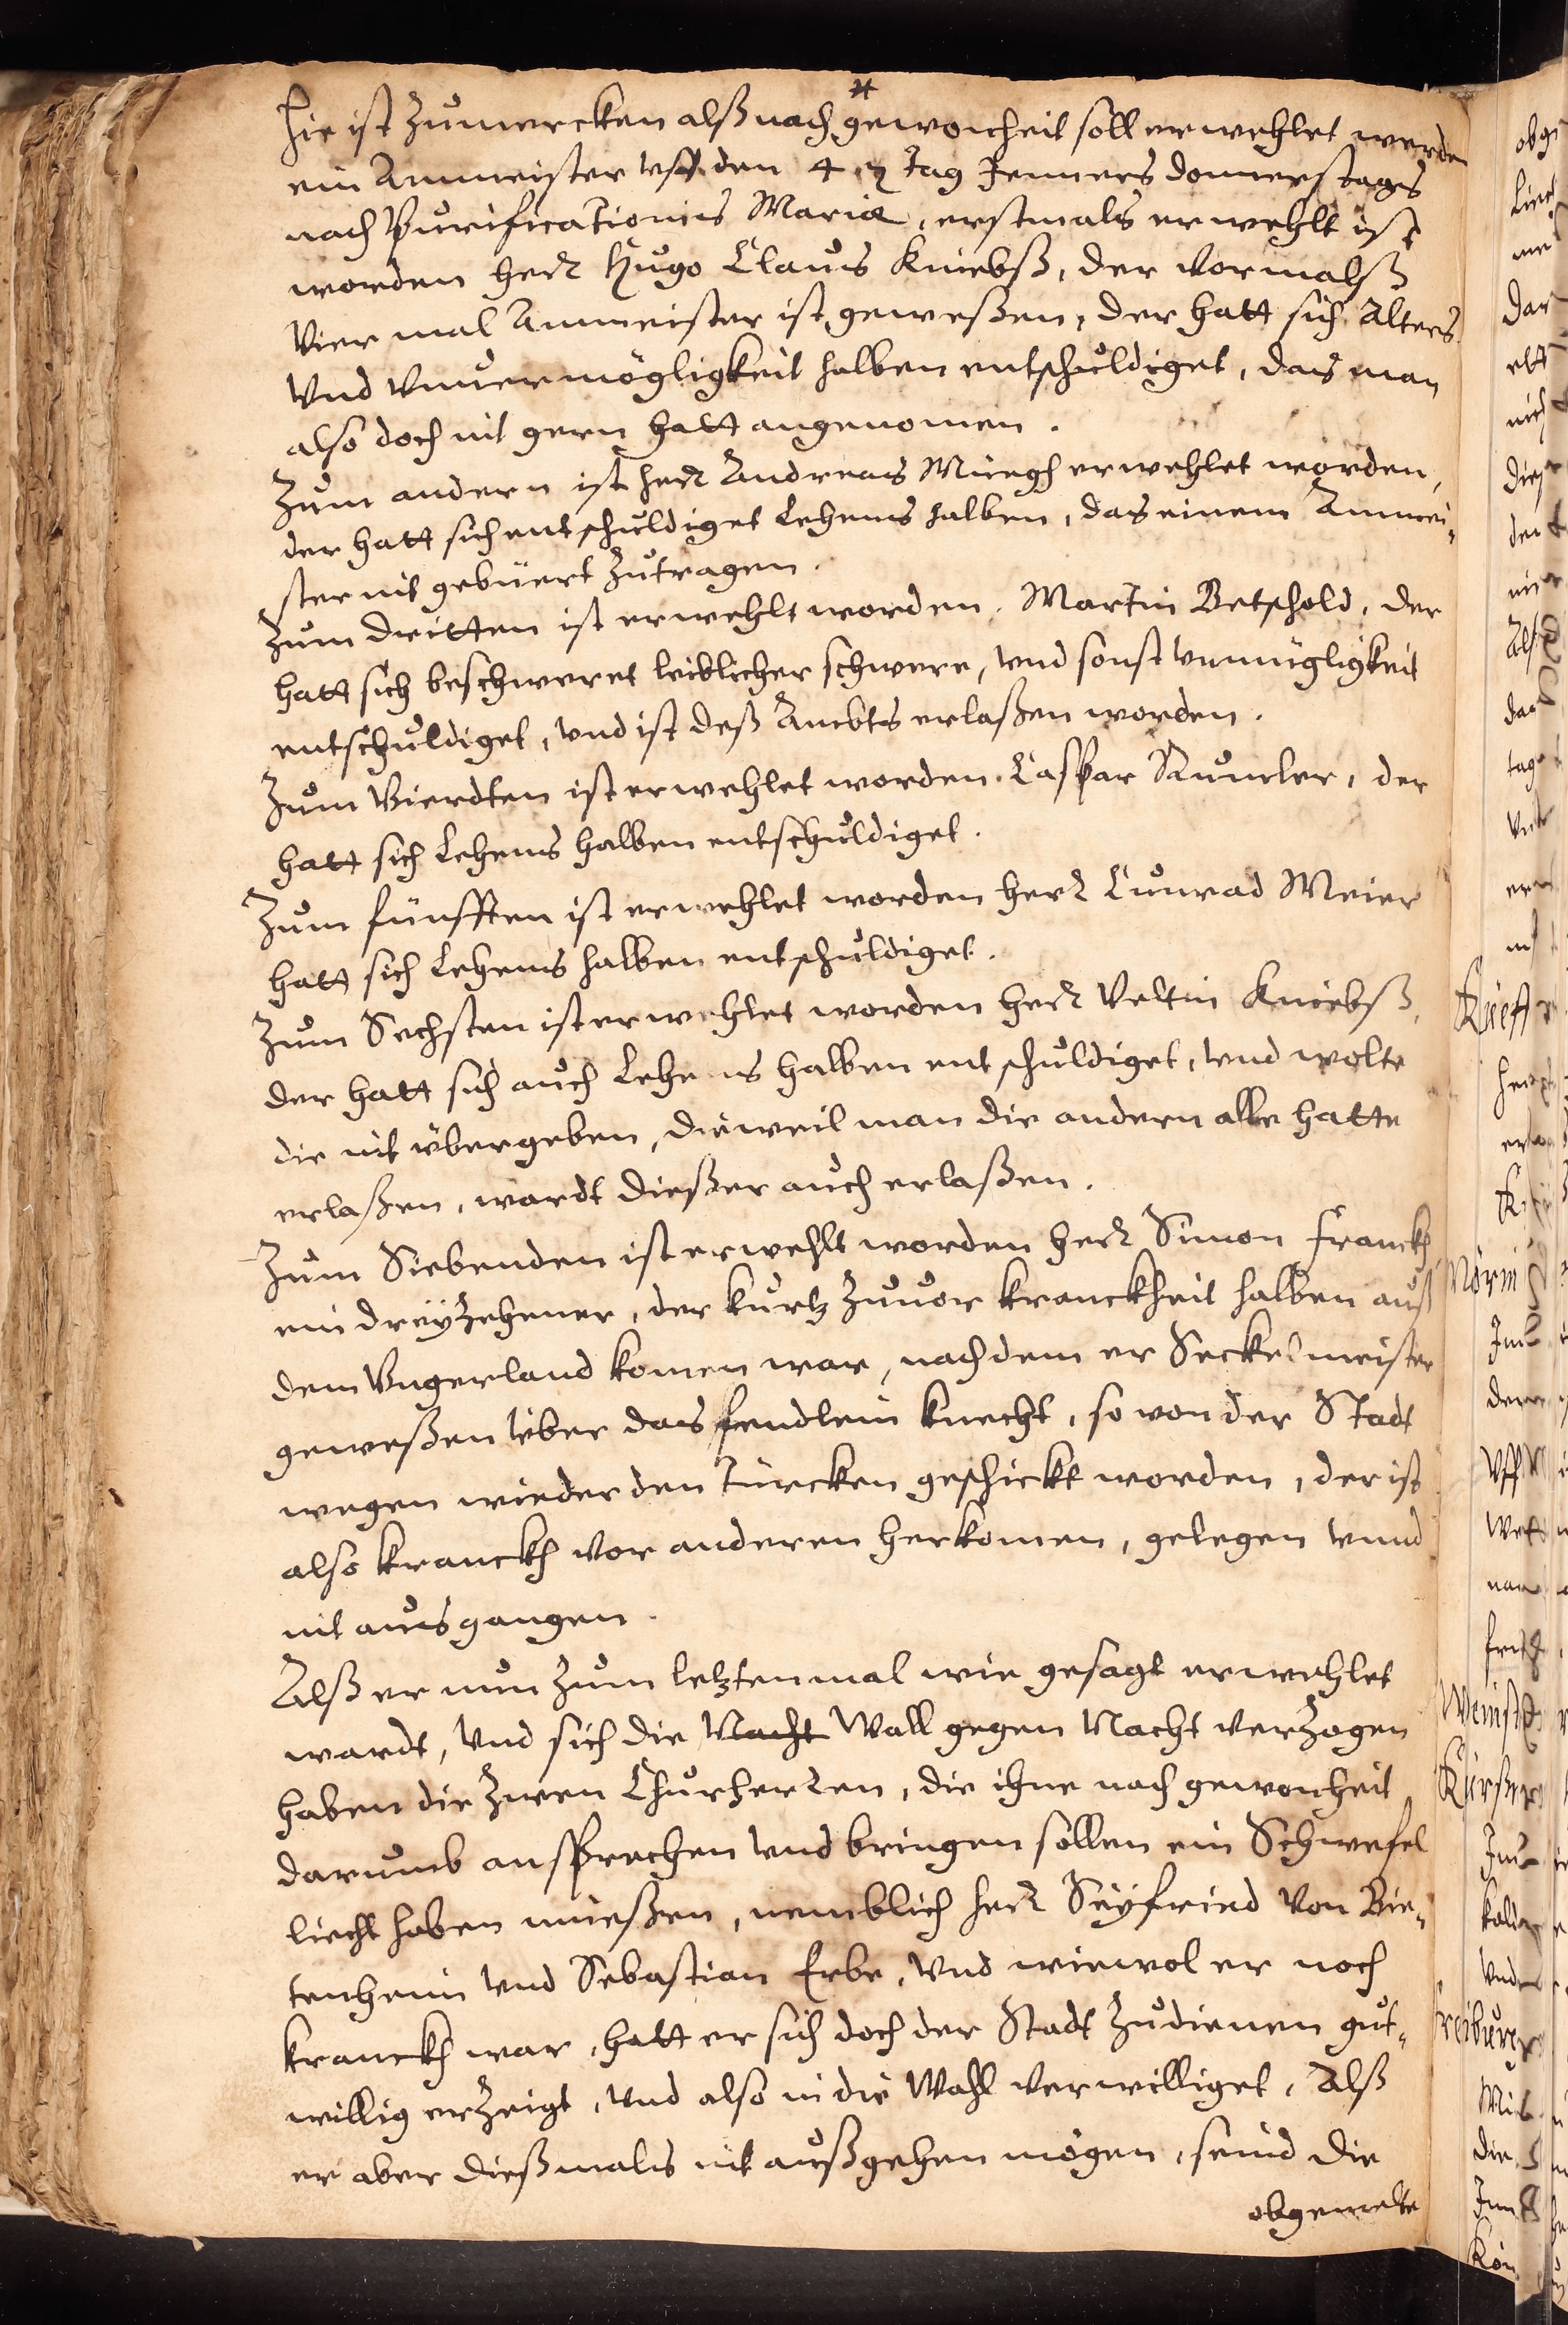 *
Hie ist Zumercken alß nach gewoncheit soll erwehlet werden
ein Ammeister vff den 4. Tag Jenners donnerstags
nach Purificationis Mariæ, erstmals erwehlt ist
worden herr Hugo Claus Kniebß, der vormalß
vier mal Ammeister ist geweßen, der hatt sich Alters
vnd vnuermögligkeit halben entschuldiget, das man
also doch nit gern hatt angenomen.
Zum andern ist herr Andreas Müegh erwehlet worden,
der hatt sich entschuldiget Lehens halben, das einem Ammei-
ster nit gebüert Zutragen.
Zum dritten ist erwehlt worden. Martin Betschold, der
hatt sich beschweret leiblicher schwere, vnd sonst vnmügligkeit
entschuldiget, vnd ist deß Ambts erlaßen worden.
Zum Vierdten ist erwehlet worden. Caspar Rumler, der
hatt sich Lehens halben entschuldiget.
Zum fünfften ist erwehlet worden herr Cunrad Meier
hatt sich Lehens halben entschuldiget.
Zum Sechsten ist erwehlet worden herr Veltin Kniebß,
der hatt sich auch Lehens halben entschuldiget, vnd wolte
die nit übergeben, dieweil man die andern alle hatte
erlaßen, wardt dießer auch erlaßen.
Zum Siebenden ist erwehlt worden herr Simon Franckh
ein dreyzehener, der kurtz Zuuor kranckheit halben auß
dem Vngerland komen war, nach dem er Seckelmeister
geweßen über das fendlein knecht, so von der Stadt
wegen wieder den Türcken geschickt worden, der ist
also kranckh vor anderen herkomen, gelegen vnnd
nit ausgangen.
Alß er nun Zum letztenmal wie gesagt erwehlet
wardt, vnd sich die Nacht Wall gegen Nacht verzogen
haben die Zwen Churherren, die ihne nach gewonheit
darumb ansprechen vnd bringen sollen ein Schwefel
liecht haben müeßen, nemblich herr Seyfried von Bie-
tenheim vnd Sebastian Erbe, vnd wiewol er noch
kranckh war, hatt er sich doch der Stadt Zudienen gut-
willig erzeigt, vnd also in die Wahl verwilliget, Alß
er aber dießmals nit außgehen mögen, seind die
obgemelte